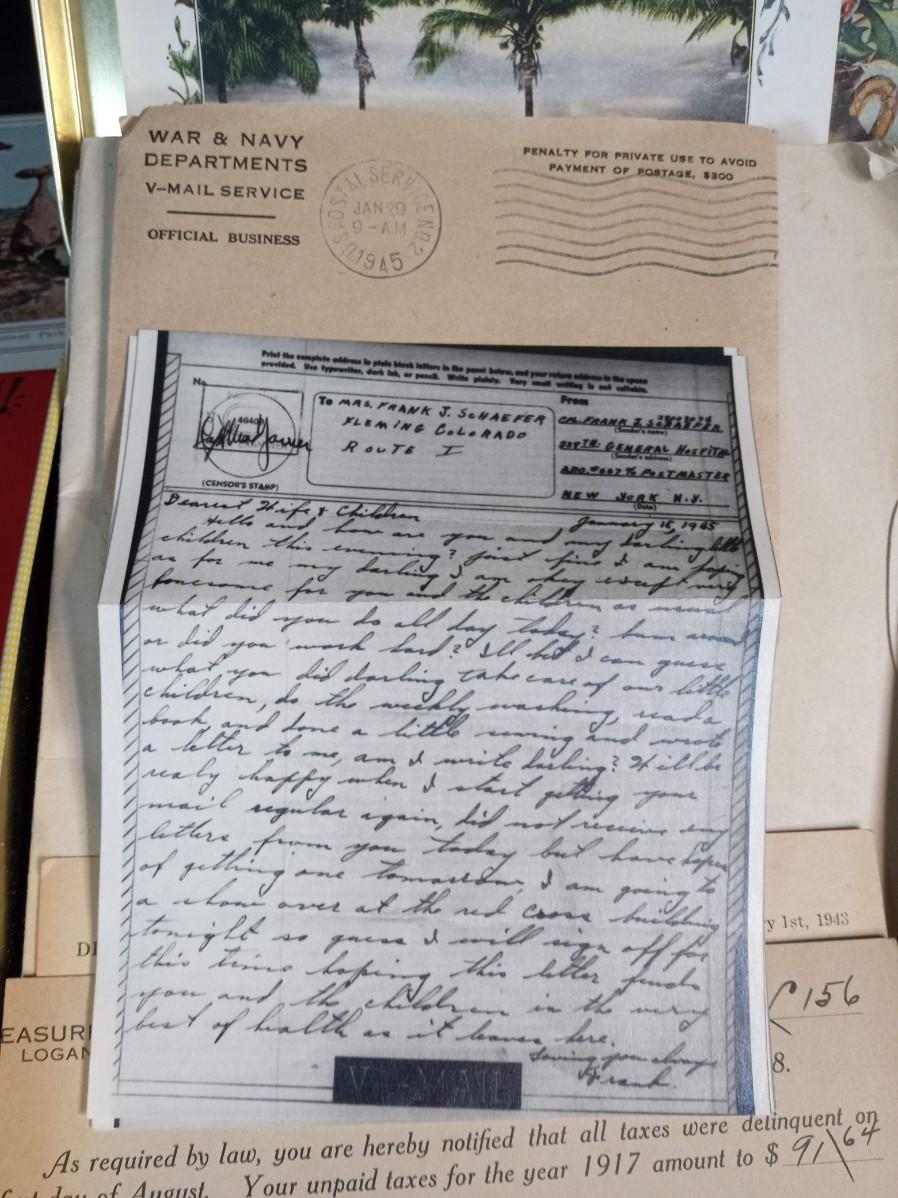 WAR & NAVY
DEPARTMENTS
V-MAIL SERVICE
OFFICIAL BUSINESS
U.S. POSTAL SERVICE NO. 2
JAN 29
9-AM
1945
PENALTY FOR PRIVATE USE TO AVOID
PAYMENT OF POSTAGE, $300
Print the complete address in plain block letters in the panel below, and your return address in the space
provided. Use typewriter, dark ink, or pencil. Write plainly. Very small writing is not suitable.
No.
46409
(CENSOR'S STAMP)
To MRS. FRANK J. SCHAEFER
FLEMING COLORADO
ROUTE I
From
CPL. FRANK J. SCHAEFER
(Sender's name)
GENERAL HOSPITAL
(Sender's address)
APO #667 % POSTMASTER
NEW YORK N.Y.
(Date)
Dearest Wife & Children
January 18, 1945
Hello and how are you and my darling little
children this evening? just fine I am hoping
as for me my darling I am okey except very
lonesome for you and the children as usual
what did you do all day today? bum around
or did you work hard? I'll bet I can guess
what you did darling take care of our little
children, do the weekly washing, read a
book, and done a little sewing and wrote
a letter to me, am I write darling? Will be
realy happy when I start getting your
mail regular again, did not receive any
letters from you today but have hopes
of getting one tomorrow, I am going to
a show over at the red cross building
tonight so guess I will sign off for
this time hoping this letter finds
you and the children in the very
best of health as it leaves here.
Loving you always
Frank.
V-MAIL
y 1st, 1943
156
EASUR
LOGAN
8.
As required by law, you are hereby notified that all taxes were delinquent on
first day of August. Your unpaid taxes for the year 1917 amount to $ 91 64